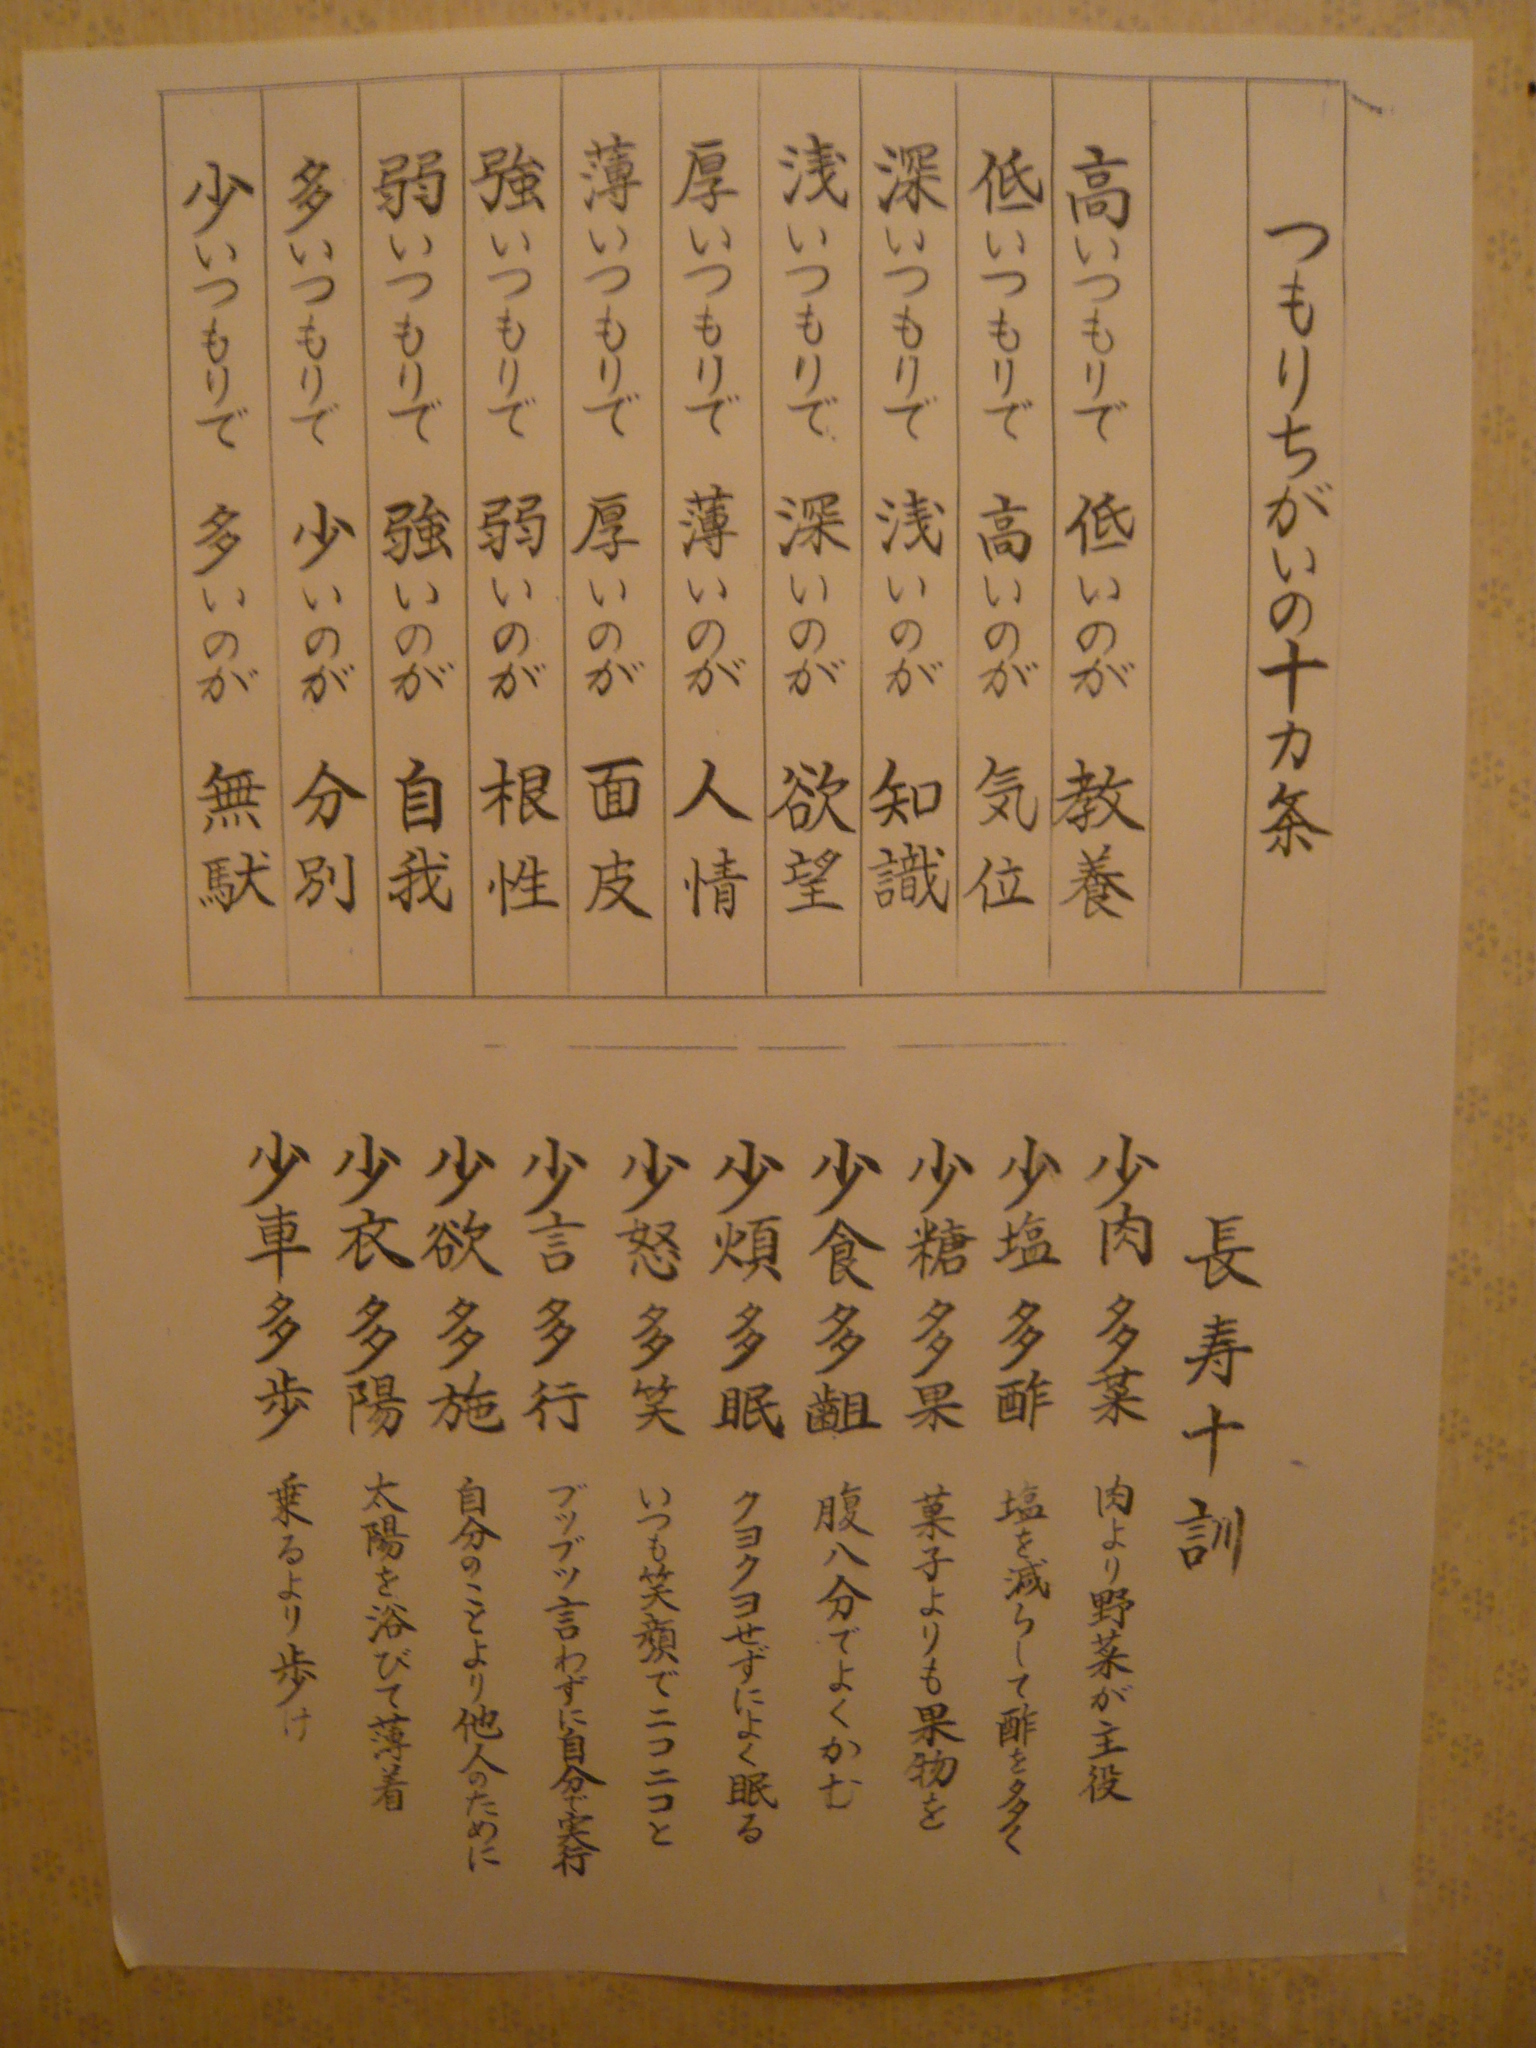 つもりちがいの十カ条
高いつもりで 低いのが 教養
低いつもりで 高いのが 気位
深いつもりで 浅いのが 知識
浅いつもりで 深いのが 欲望
厚いつもりで 薄いのが 人情
薄いつもりで 厚いのが 面皮
強いつもりで 弱いのが 根性
弱いつもりで 強いのが 自我
多いつもりで 少いのが 分別
少いつもりで 多いのが 無駄
長寿十訓
少肉多菜 肉より野菜が主役
少塩多酢 塩を減らして酢を多く
少糖多果 菓子よりも果物を
少食多齟 腹八分でよくかむ
少煩多眠 クヨクヨせずによく眠る
少怒多笑 いつも笑顔でニコニコと
少言多行 ブツブツ言わずに自分で実行
少欲多施 自分のことより他人のために
少衣多陽 太陽を浴びて薄着
少車多歩 乗るより歩け